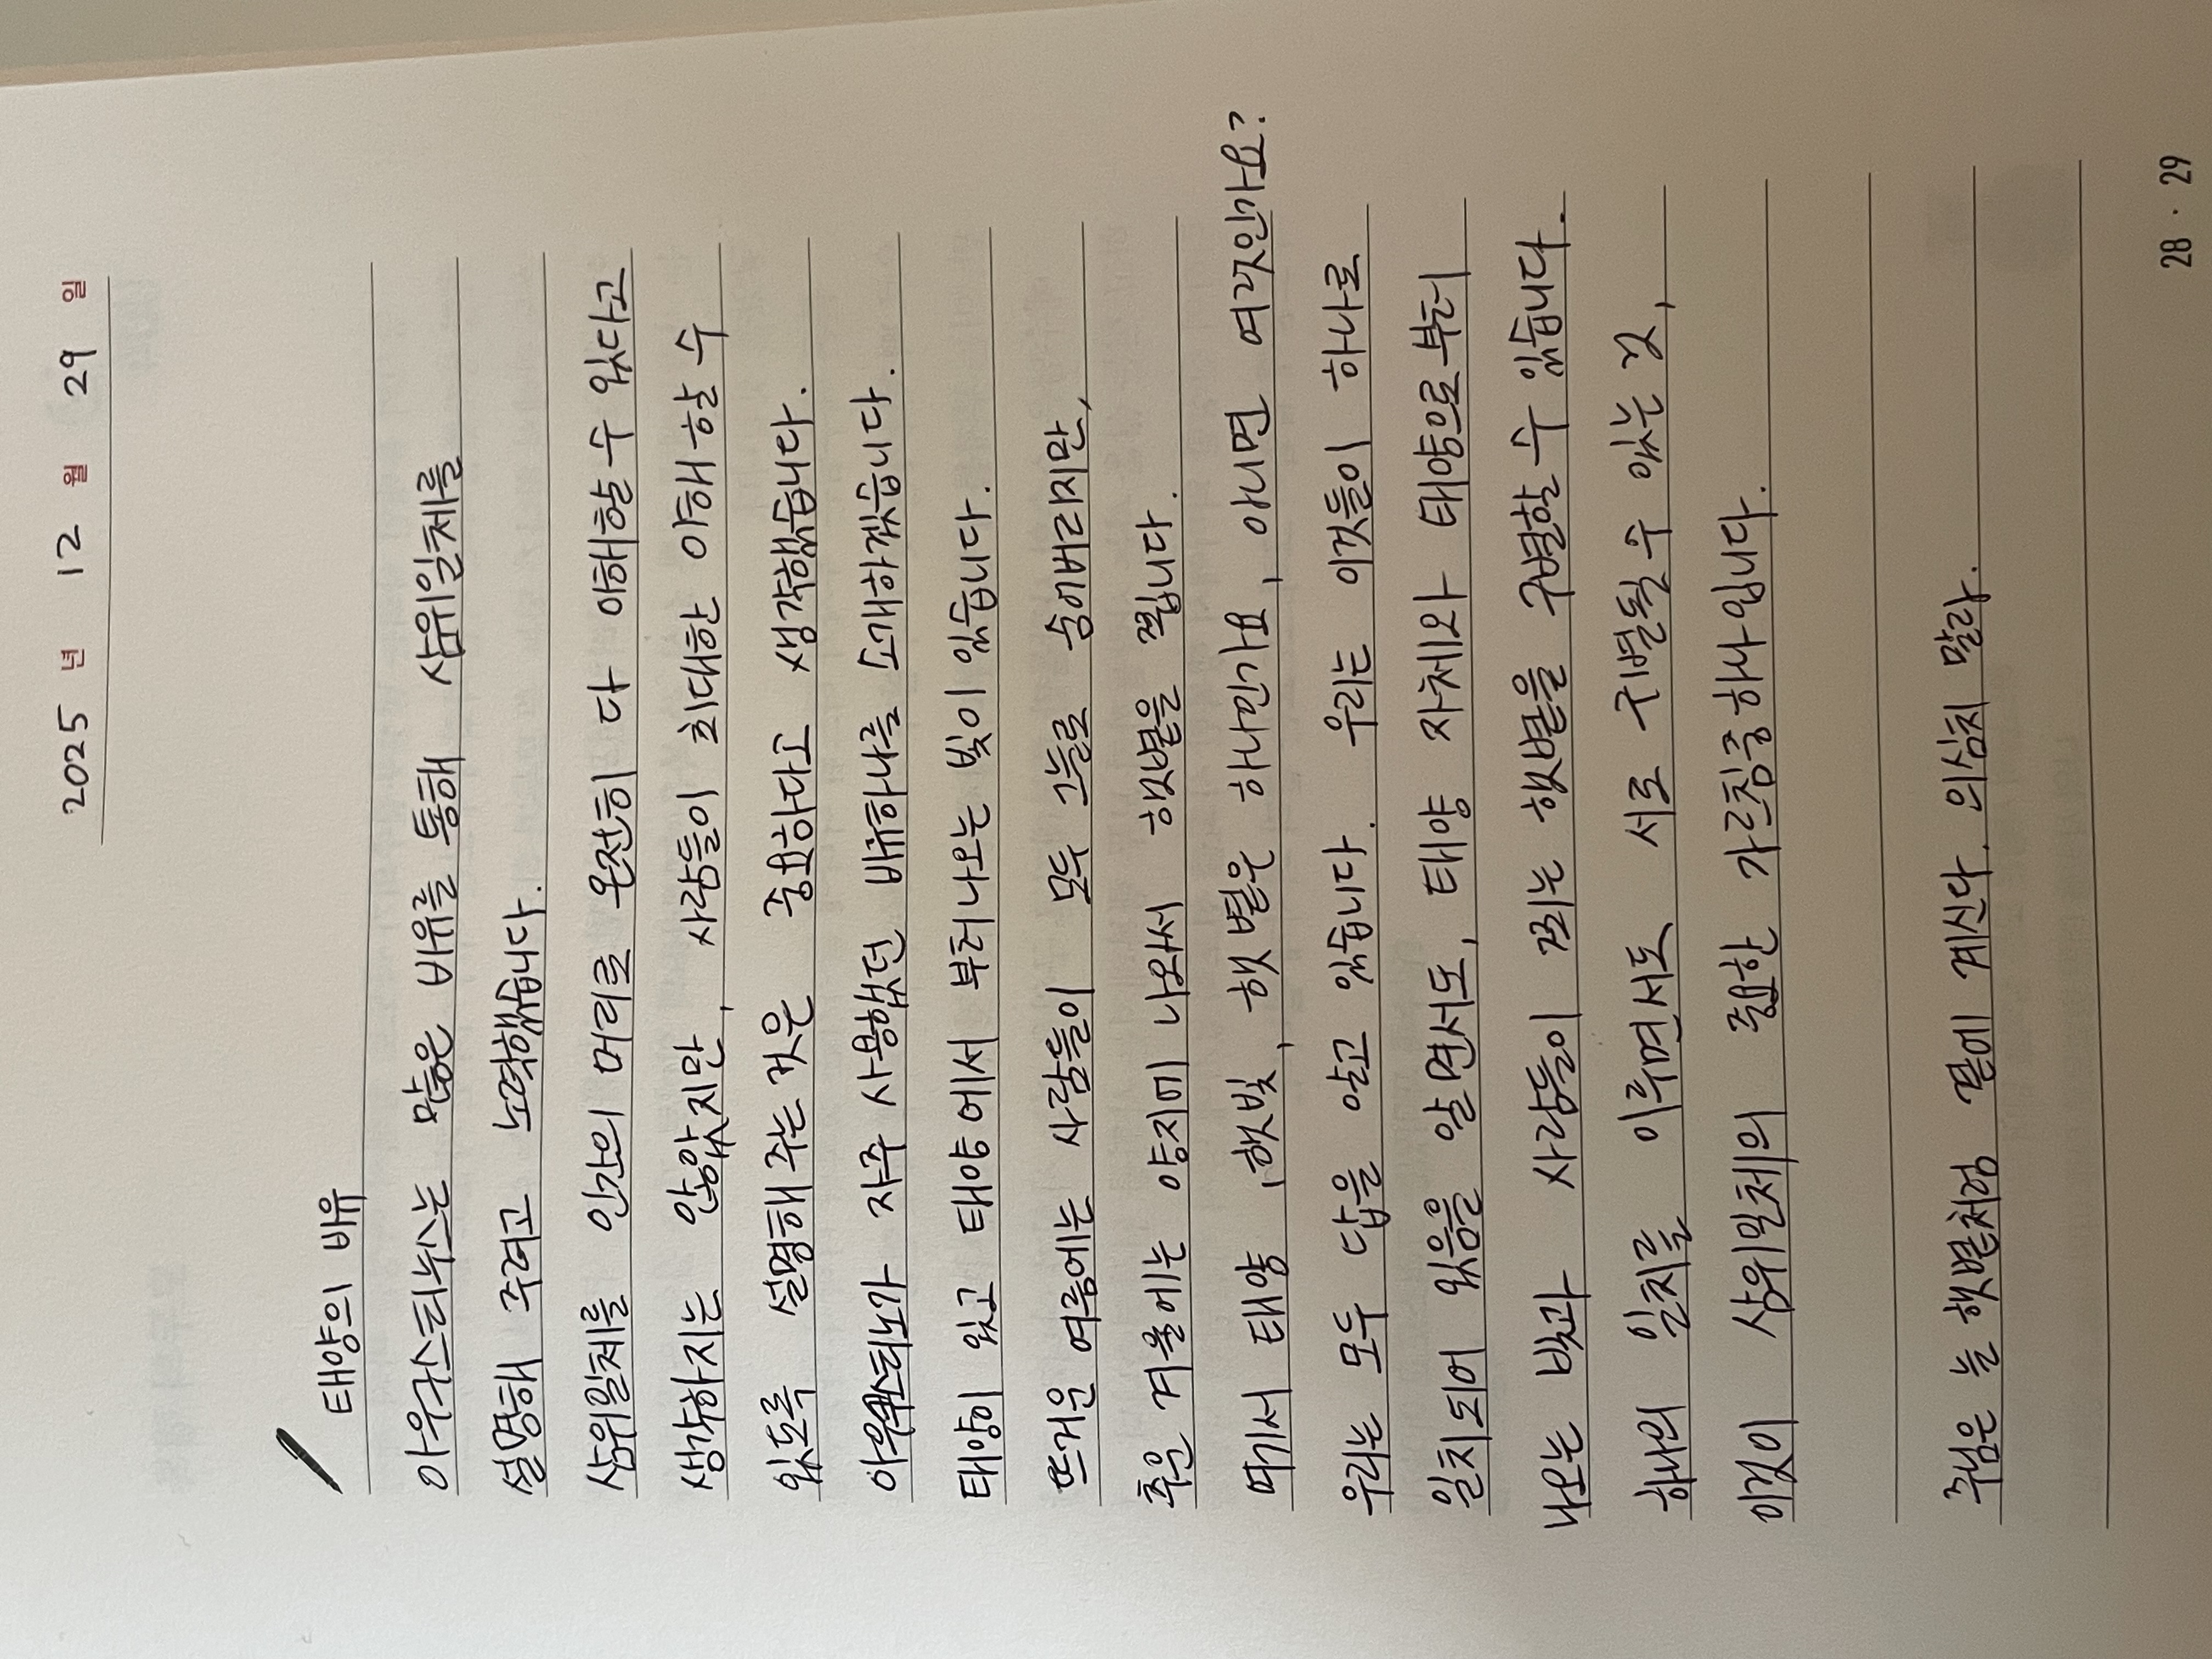 2025 년 12 월 29 일
태양의 비유
아우구스티누스는 많은 비유를 통해 삼위일체를
설명해 주려고 노력했습니다.
삼위일체를 인간의 머리로 온전히 다 이해할 수 있다고
생각하지는 않았지만, 사람들이 최대한 이해할 수
있도록 설명해 주는 것은 중요하다고 생각했습니다.
아우구스티노가 자주 사용했던 비유하나를 소개하겠습니다.
태양이 있고 태양에서 부터 나오는 빛이 있습니다.
뜨거운 여름에는 사람들이 모두 그늘로 숨어버리지만,
추운 겨울에는 양지에 나와서 햇볕을 쬡니다.
여기서 태양, 햇빛, 햇볕은 하나인가요, 아니면 여럿인가요?
우리는 모두 답을 알고 있습니다. 우리는 이것들이 하나로
일치되어 있음을 알면서도, 태양 자체와 태양으로부터
나오는 빛과 사람들이 쬐는 햇볕을 구별할 수 있습니다.
하나의 일치를 이루면서도 서로 구별될 수 있는 것,
이것이 삼위일체의 중요한 가르침중 하나입니다.
주님은 늘 햇볕처럼 곁에 계신다. 의심치 말라.
28 · 29